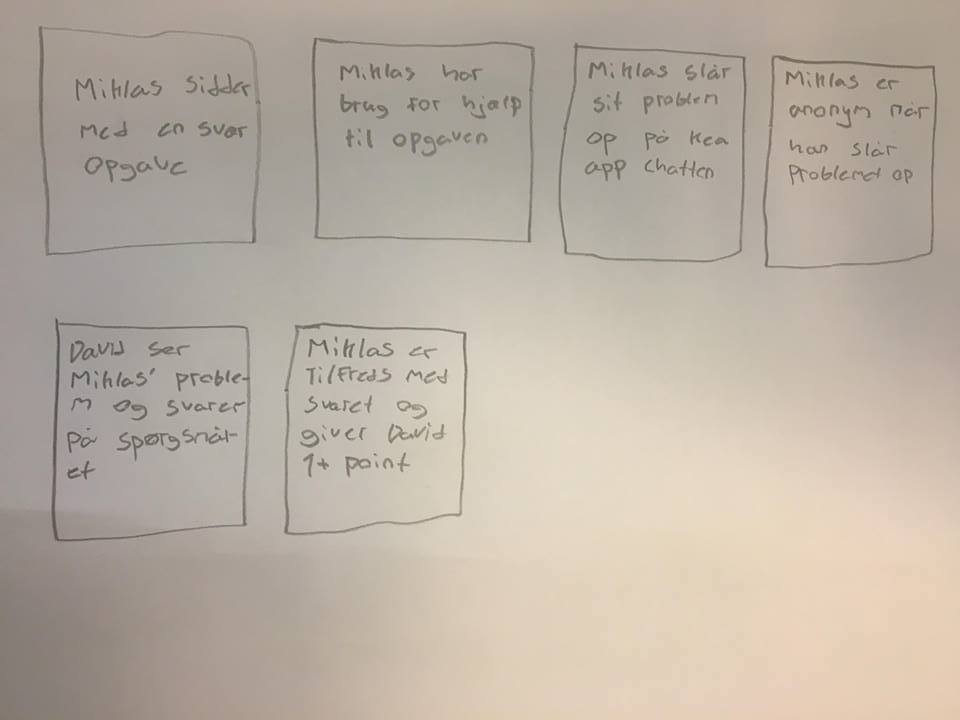 Mihlas sidder
med en svær
opgave
Mihlas har
brug for hjælp
til opgaven
Mihlas slår
sit problem
op på Kea
app chatten
Mihlas er
anonym når
han slår
Problemet op
David ser
Mihlas' proble-
m og svarer
på spørgsmål-
et
Mihlas er
Tilfreds med
svaret og
giver David
1+ point